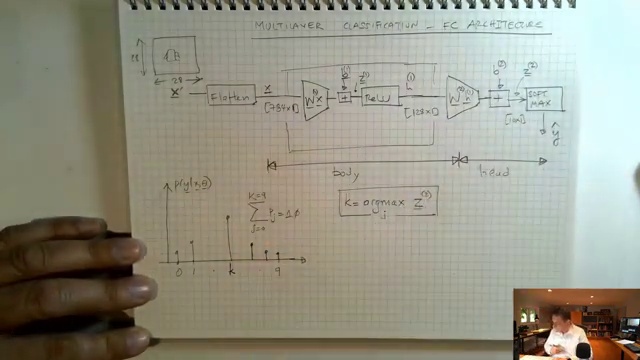 MULTILAYER CLASSIFICATION - FC ARCHITECTURE
28
28
x'
Flatten
x
[784x1]
W⁽¹⁾x
b⁽¹⁾
+
z⁽¹⁾
ReLU
h⁽¹⁾
[128x1]
W⁽²⁾h⁽¹⁾
b⁽²⁾
+
z⁽²⁾
[10x1]
SOFT
MAX
ŷ
body
head
p(y|x,θ)
K=9
∑ p_j = 1.0
j=0
0 1 . k 9
k = argmax z⁽²⁾
j